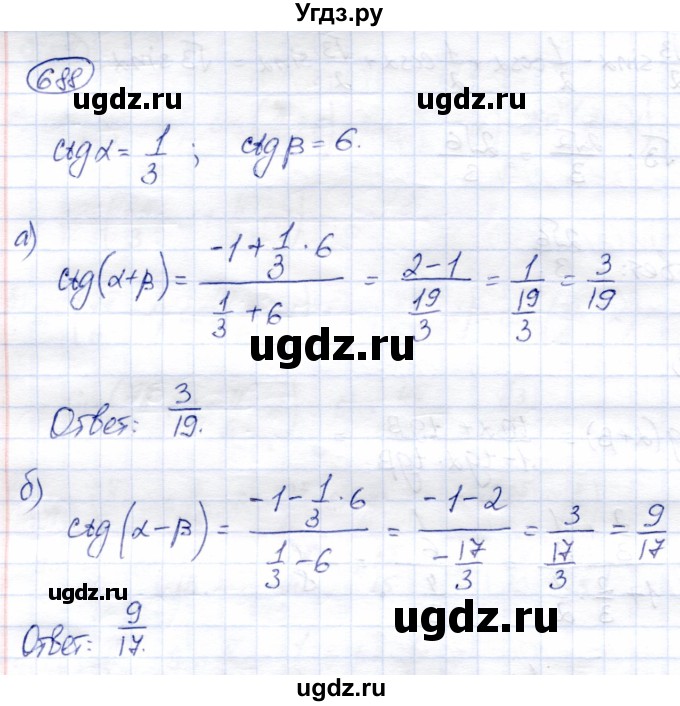 Угдз.ру
688
ugdz.ru ugdz.ru
ctgα = 1/3 ; ctgβ = 6.
а)
ctg(α+β) = (-1 + 1/3 · 6)/(1/3 + 6) = (2-1)/(19/3) = 1/(19/3) = 3/19
ugdz.ru
Ответ: 3/19.
б)
ctg(α-β) = (-1 - 1/3 · 6)/(1/3 - 6) = (-1-2)/(-17/3) = 3/(17/3) = 9/17
ugdz.ru
ugdz.ru
Ответ: 9/17.
ugdz.ru